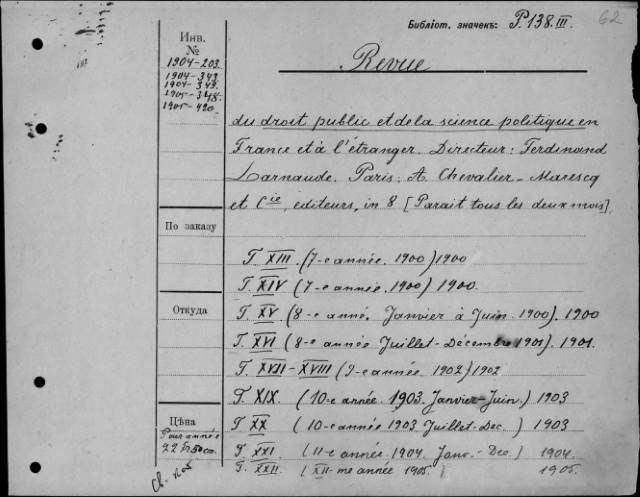 Библіот. значекъ: P. 138. III.
62
Инв.
№
1904-203
1904-343
1904-349
1905-420
Revue
du droit public et de la science politique en
France et à l'étranger. Directeur: Ferdinand
Larnaude. Paris. A. Chevalier-Marescq
et Cie, editeurs, in 8 [Parait tous les deux mois].
По заказу
T. XIII. (7-e année. 1900) 1900
T. XIV (7-e année. 1900) 1900.
Откуда
T. XV (8-e anné. Janvier à Juin. 1900). 1900
T. XVI (8-e année Juillet-Décembre 1901). 1901.
T. XVII-XVIII (9-e année. 1902) 1902
T. XIX. (10-e année. 1903. Janvier-Juin.) 1903
Цѣна
T XX (10-e année 1903. Juillet-Dec.) 1903
Pour année
22 fr 50 co.
T. XXI (11-e année. 1904. Janv.-Dec.) 1904.
T. XXII. (XII-me année 1905.) 1905.